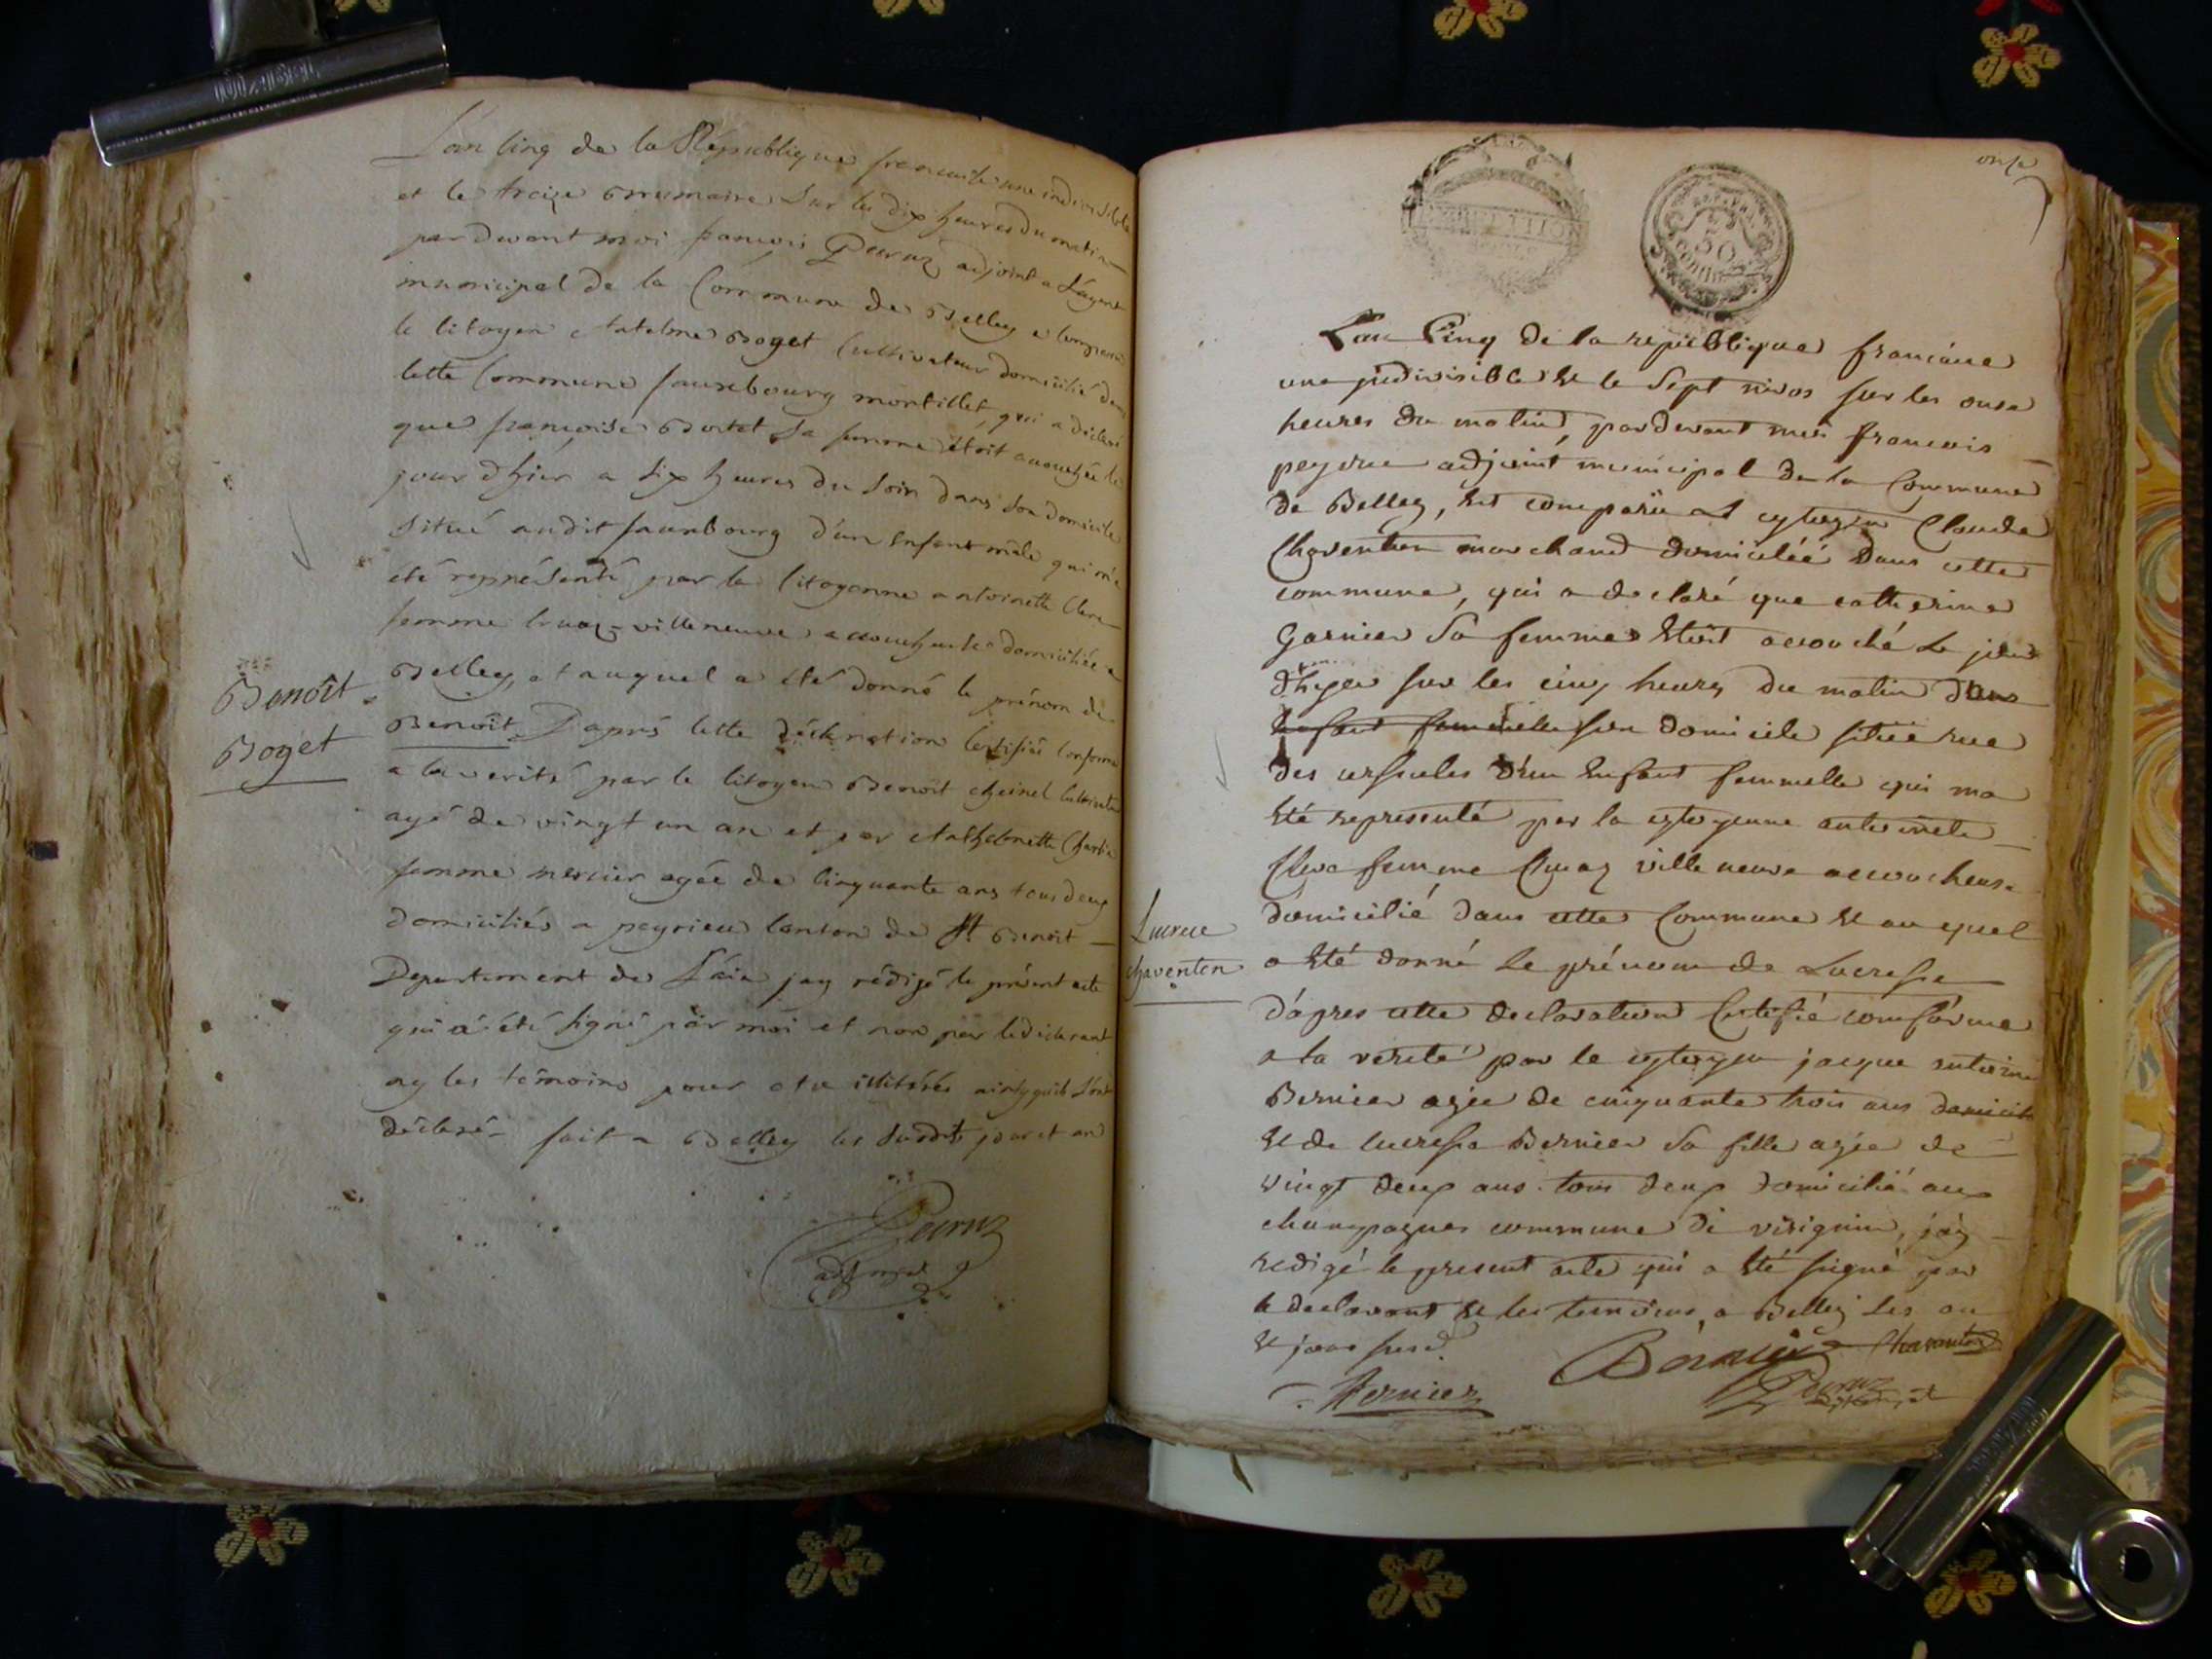 L'an Cinq de la République francaise une indivisible
et le treize Brumaire Sur les dix heures du matin
par devant moi françois Peuruz adjoint a L'agent
municipal de la Commune de Belley a Comparu
le Citoyen Antelme Boget Cultivateur domicilié dans
Cette Commune fauxbourg montillet, qui a déclaré
que françoise Bortet Sa femme étoit accouchée le
jour d'hier a Six heures du Soir dans Son domicile
Situé audit fauxbourg d'un Enfant mâle qui m'a
été représenté par la Citoyenne antoinette Clerc
femme Cruaz-villeneuve accoucheuse domiciliée a
Belley, et auquel a été donné le prénom de
Benoît D'après Cette déclaration Certifiée Conforme
a la verité par le Citoyen Benoit cheinel Cultivateur
agé de vingt un an et par Anthelmette Charlin
femme mercier agée de Cinquante ans tous deux
domiciliés a peyrieu Canton de St Benoit —
Departement de L'ain jay rédigé le présent acte
qui a été Signé par moi et non par le déclarant
ny les témoins pour etre illitérés ainsy quils L'ont
déclaré fait a Belley les Susdits jour et an
Benoît
Boget
Peuruz
adj. mpal
onze
50
Centim
L'an Cinq de la republique francaise
une jndivisible Et le Sept nivos sur les onze
heures du matin, par devant moi francois —
peyruc adjoint municipal de la Commune
de Belley, Est comparu Le cytoyen Claude
Chaventon marchand domicilié dans cette
commune, qui a declaré que catherine
Garnier Sa femme Etoit accouché Le jour
d'hyer sur les cinq heures du matin dans
Enfant femmelle son domicile situé rue
des ursules d'un Enfant femmelle qui ma
Eté representé par la cytoyenne antoinete —
Clerc femme Cruaz ville neuve accoucheuse
domicilié dans cette Commune Et au quel
a Eté donné Le prénom de Lucresse
d'apres cette declaration Certifié conforme
a la verité par le cytoyen jacque antoine
Bernier agée de cinquante trois ans domicile
Et de lucresse Bernier Sa fille agée de —
vingt deux ans. tous deux domicilié aux
champagnes commune de virignin, jay —
redigé le present acte qui a Eté signé par
le declarant Et les temoins, a Belley Les an
Et jour susd.
Lucrece
Chaventon
Bernier Chavanton
Bernier
Peuruz